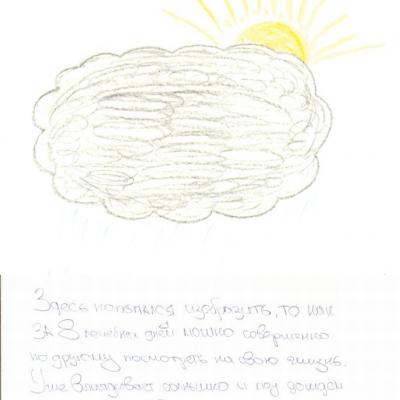 Здесь попытался изобразить, то как
за 8 лечебных дней можно совершенно
по другому посмотреть на свою жизнь.
Уже выглядывает солнышко и под дождём